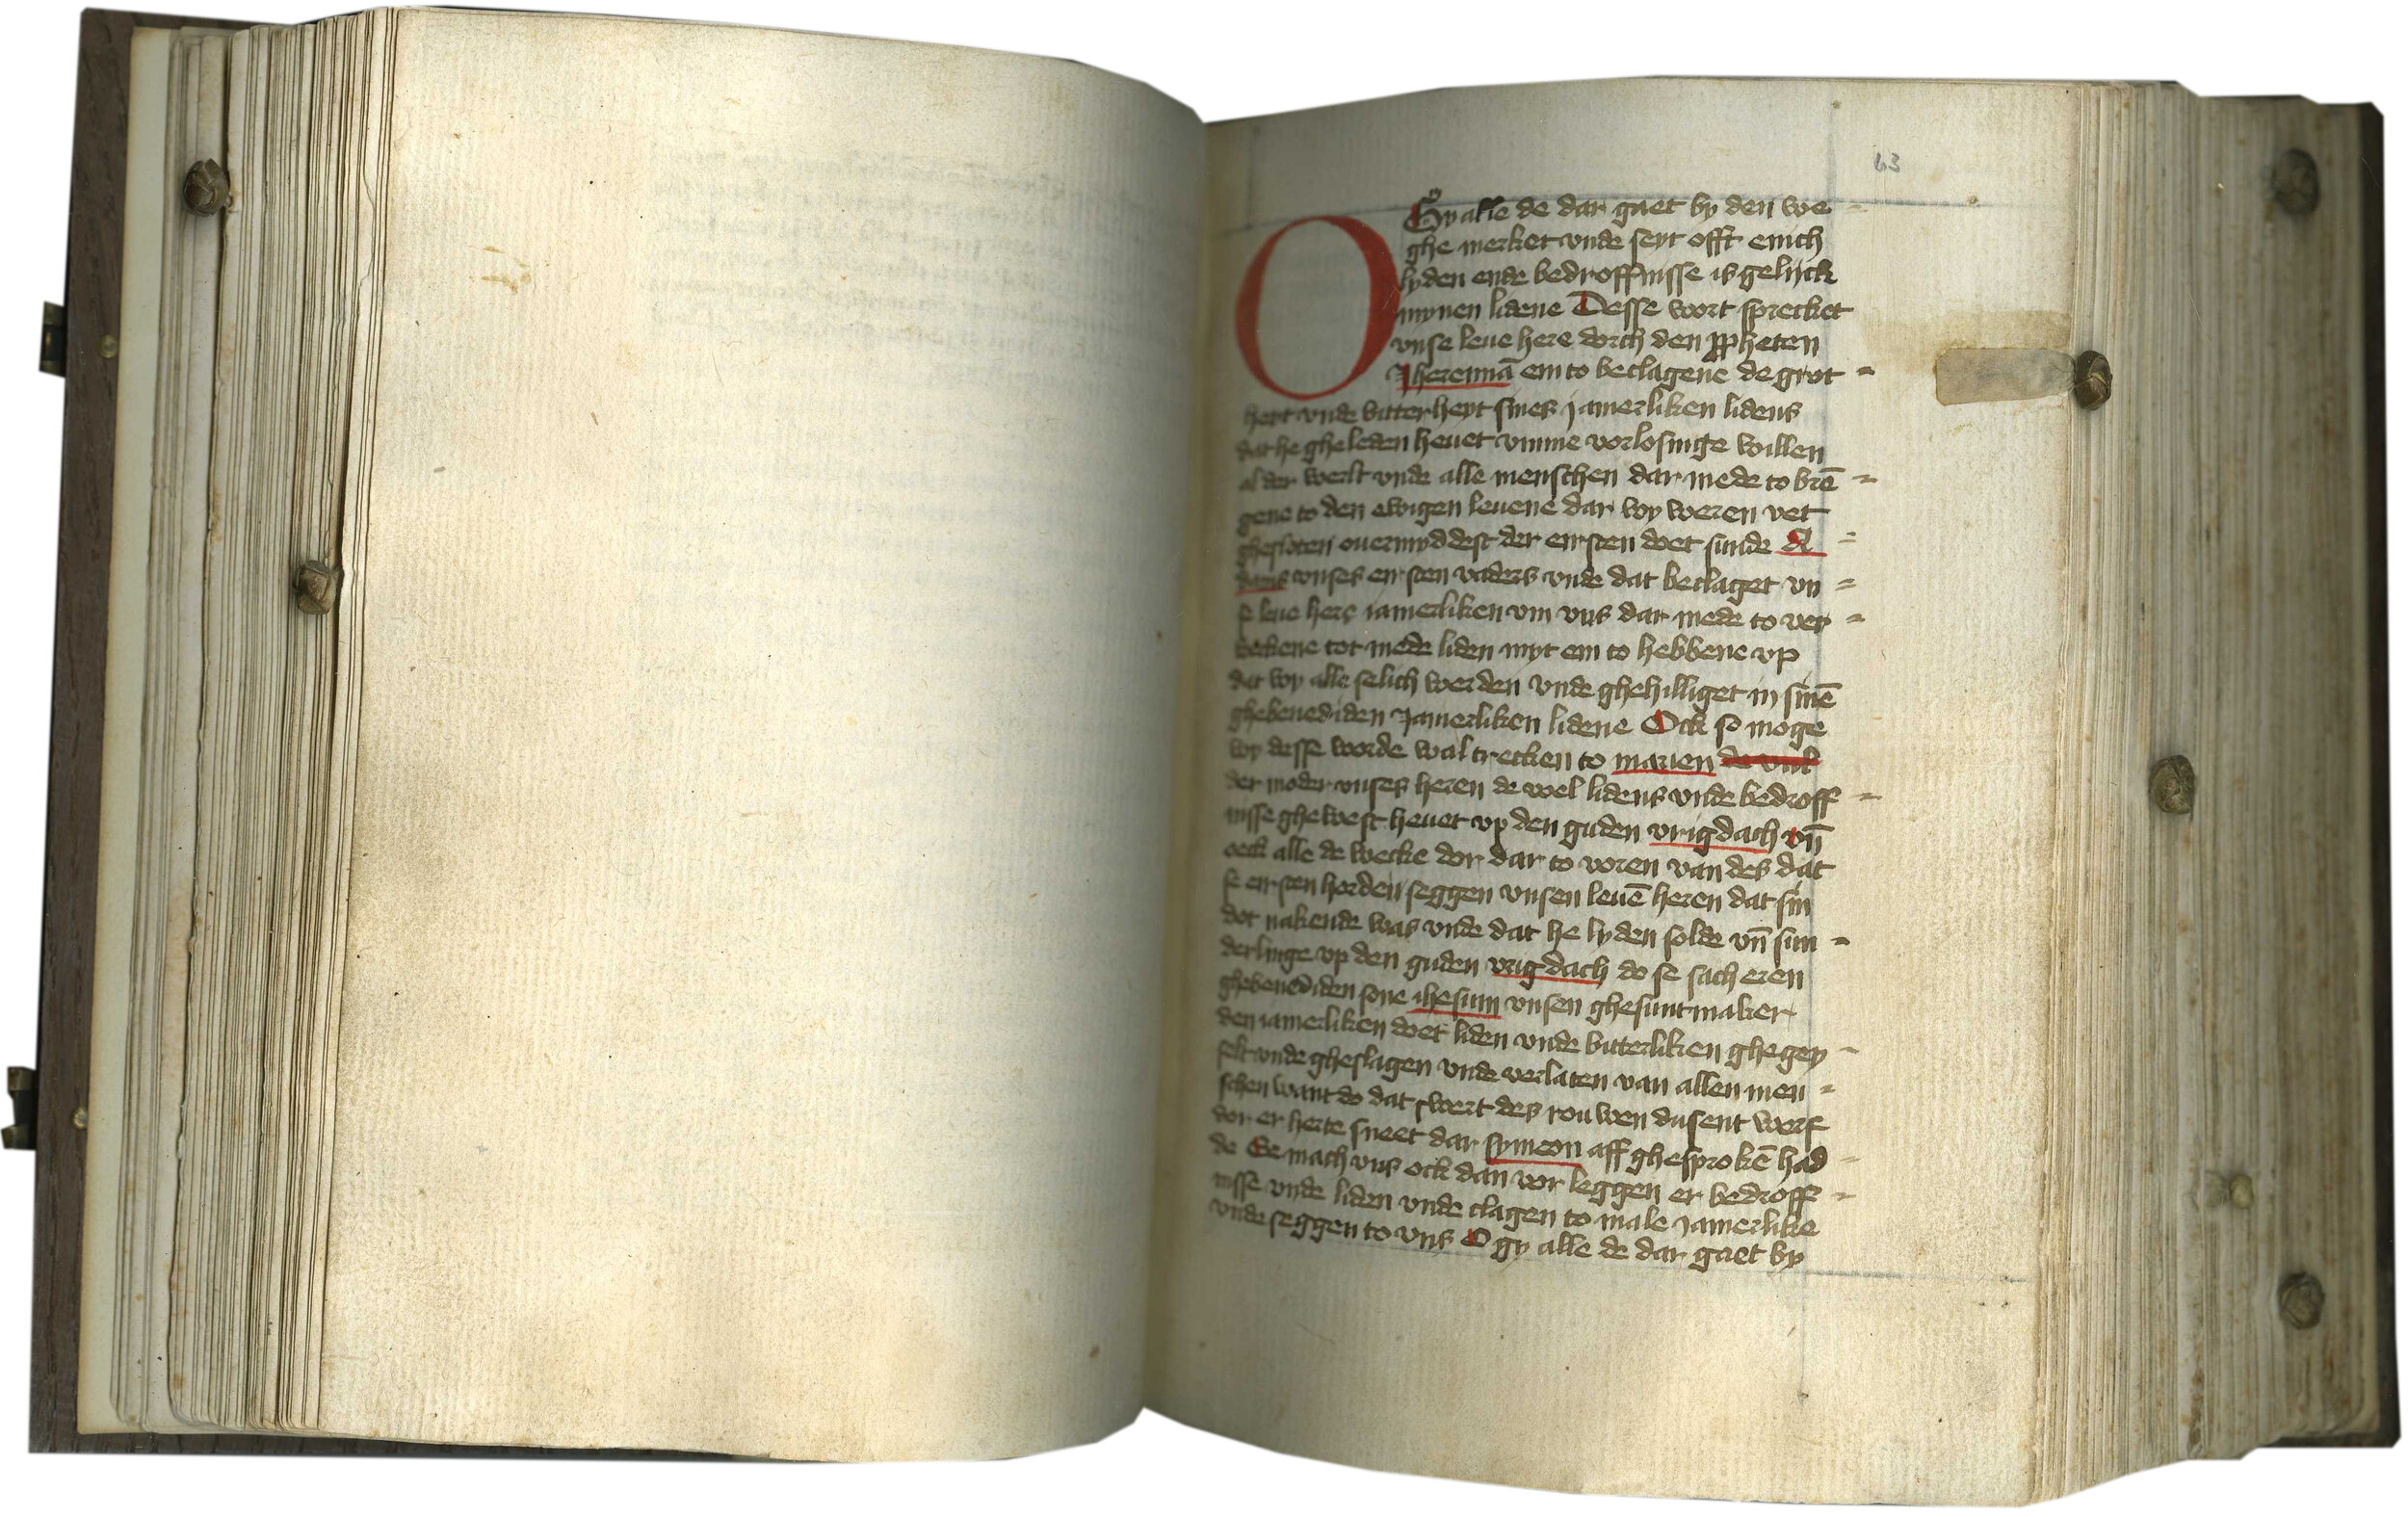 63
O Gy alle de dar gaet by den we-
ghe merket vnde seyt offt enich
lyden ende bedroffnisse is gelijck
mynen lidene Desse wort sprecket
vnse leue here dorch den ꝓpheten
Jheremiā em to beclagene de grot-
heyt vnde bitterheyt sines jamerliken lidens
dat he gheleden heuet vmme vorlosinge willen
al der werlt vnde alle menschen dar mede to brē-
gene to den ewigen leuene dar wy weren vet
ghesloten ouermyddest der eirsten doet sunde A-
dams vnses eirsten vaders vnde dat beclaget vn-
se leue here iamerliken vm vns dar mede to ver-
weckene tot mede liden myt em to hebbene vp
dat wy alle selich werden vnde ghehilliget in sinē
ghebenediden Jamerliken lidene Ock so moge
wy desse worde wal trecken to marien
der moder vnses heren de voel lidens vnde bedroff-
nisse ghewest heuet vp den guden vrigdach vn̄
oeck alle de wecke dor dar to voren van des dat
se eirsten horden seggen vnsen leuē heren dat sin
dot nakende was vnde dat he lyden solde vn̄ sun-
derlinge vp den guden vrigdach do se sach eren
ghebenediden sone ihesum vnsen ghesuntmaker
den iamerliken doet liden vnde bitterliken ghegey-
selt vnde gheslagen vnde verlaten van allen men-
schen want do dat swert des rouwen dusent werf
dor er herte sneet dar symeon aff ghesprokē had-
de Se mach vns ock dan vor leggen er bedroff-
nisse vnde liden vnde clagen to male jamerlike
vnde seggen to vns O gy alle de dar gaet by